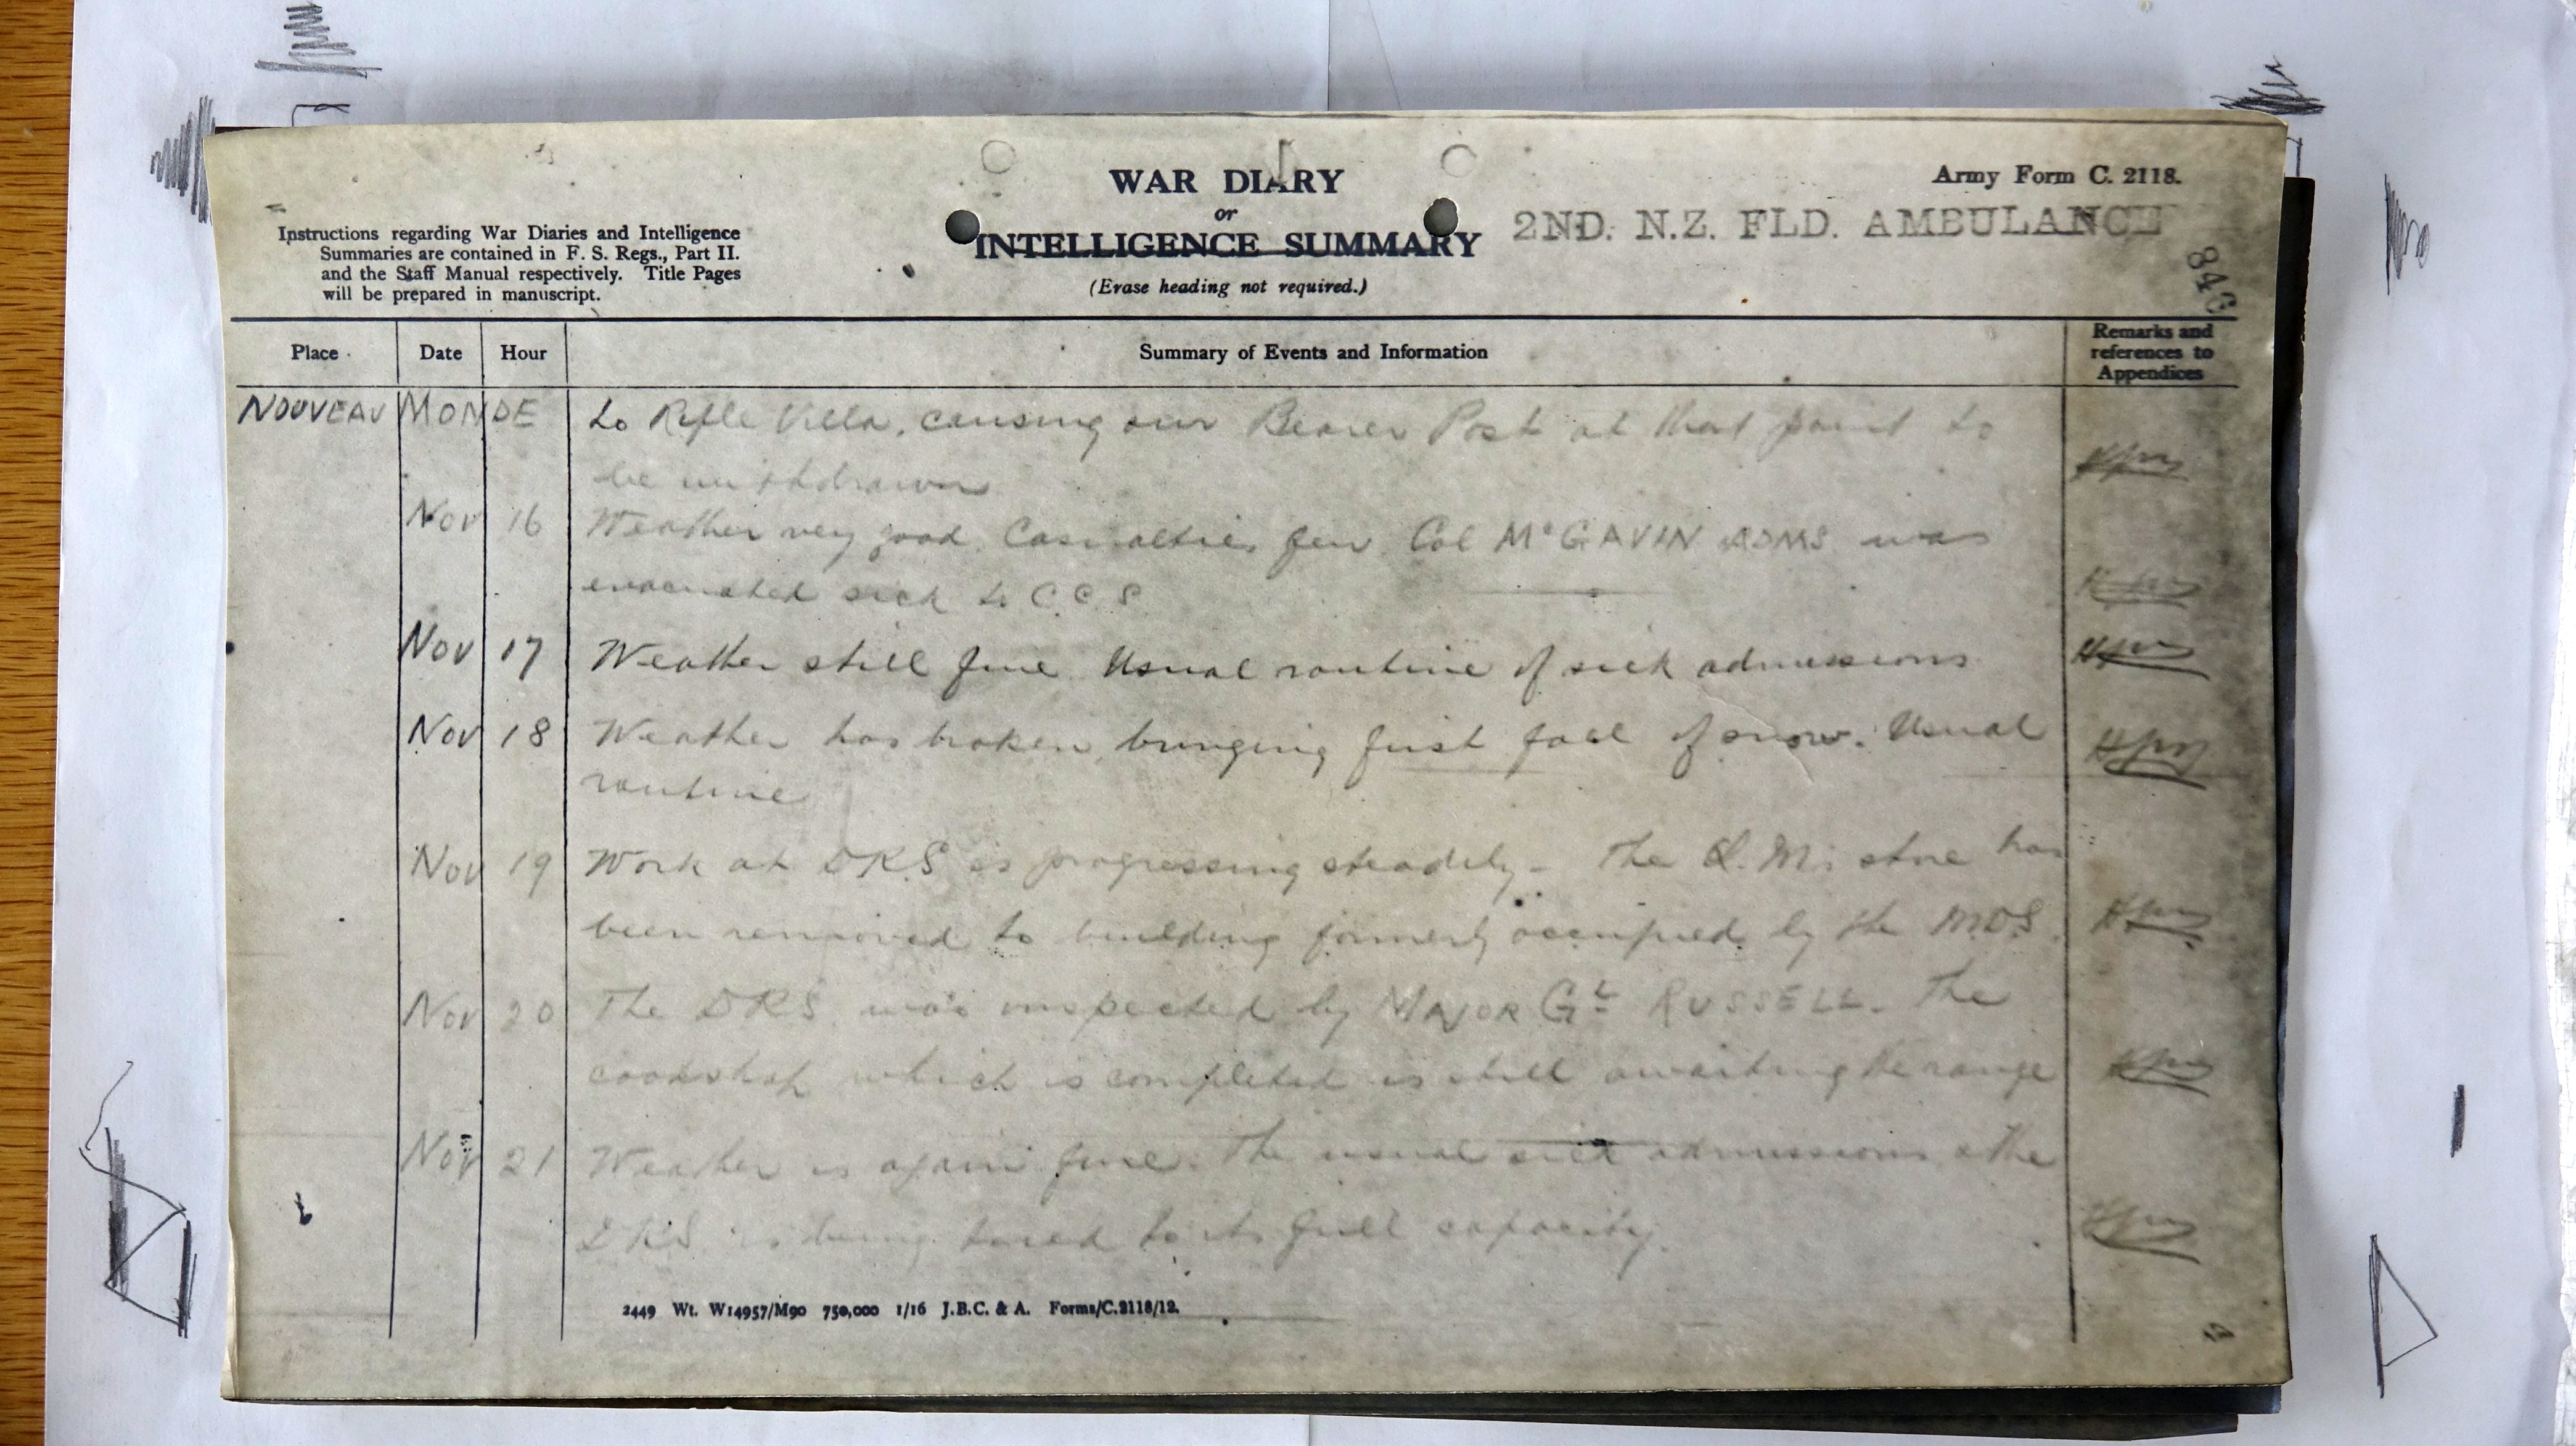 WAR DIARY
or
INTELLIGENCE SUMMARY
(Erase heading not required.)
Army Form C. 2118.
2ND. N.Z. FLD. AMBULANCE
Instructions regarding War Diaries and Intelligence
Summaries are contained in F. S. Regs., Part II.
and the Staff Manual respectively. Title Pages
will be prepared in manuscript.
Place Date Hour Summary of Events and Information Remarks and
references to
Appendices
NOUVEAU MONDE to Rifle Villa, causing our Bearer Post at that point to
be withdrawn
Nov 16 Weather very good. Casualties few. Col McGAVIN ADMS was
evacuated sick to C C S
Nov 17 Weather still fine Usual routine of sick admissions
Nov 18 Weather has broken, bringing first fall of snow. Usual
routine
Nov 19 Work at DRS is progressing steadily - The Q.M. store has
been removed to building formerly occupied by the M.D.S.
Nov 20 The DRS was inspected by MAJOR GL RUSSELL. The
cookshop which is completed is still awaiting the range
Nov 21 Weather is again fine. The usual sick admissions & the
DRS is being taxed to its full capacity.
2449 Wt. W14957/M90 750,000 1/16 J.B.C. & A. Forms/C.2118/12.